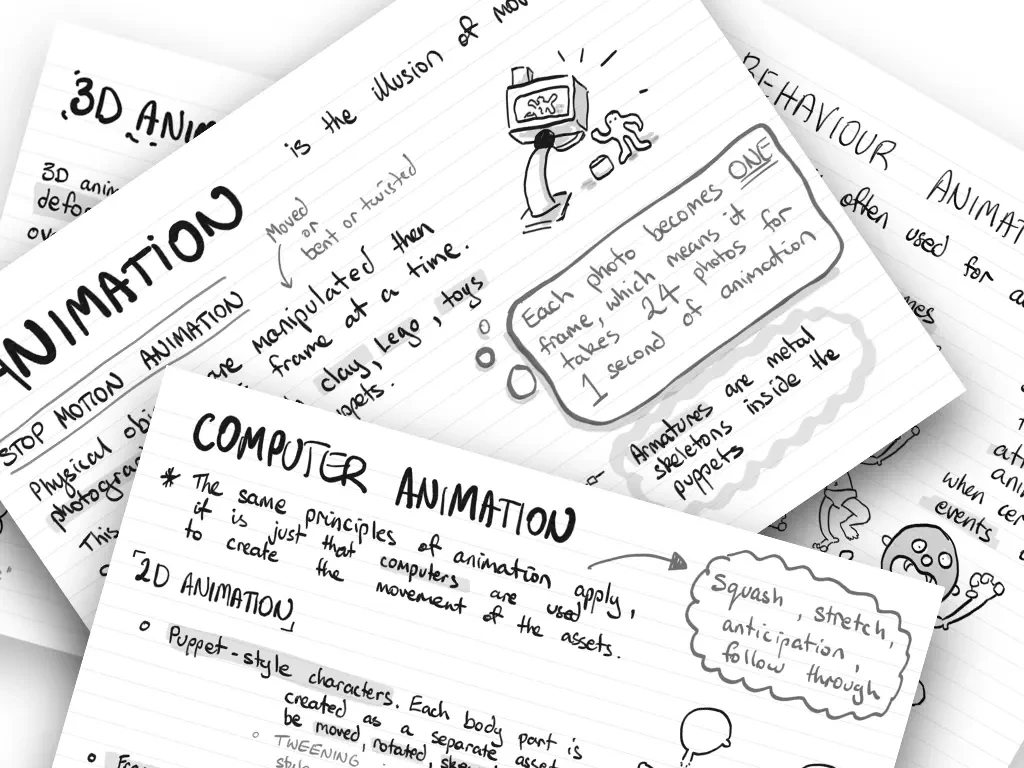 3D ANIM
3D anim
defo
ov
ANIMATION
is the illusion of mov
STOP MOTION ANIMATION
Moved
or
bent or twisted
Physical obj
are manipulated then
photogra
frame at a time.
This
clay, Lego, toys
ppets.
Each photo becomes ONE
frame, which means it
takes 24 photos for
1 second of animation
Armatures are metal
skeletons inside the
puppets
BEHAVIOUR ANIMAT
often used for a
mes
att
anim
when cer
events
COMPUTER ANIMATION
* The same principles of animation apply,
it is just that computers are used
to create the movement of the assets.
Squash, stretch,
anticipation,
follow through
2D ANIMATION
Puppet-style characters. Each body part is
created as a separate asset
be moved, rotated, skew
TWEENING
style
Fra